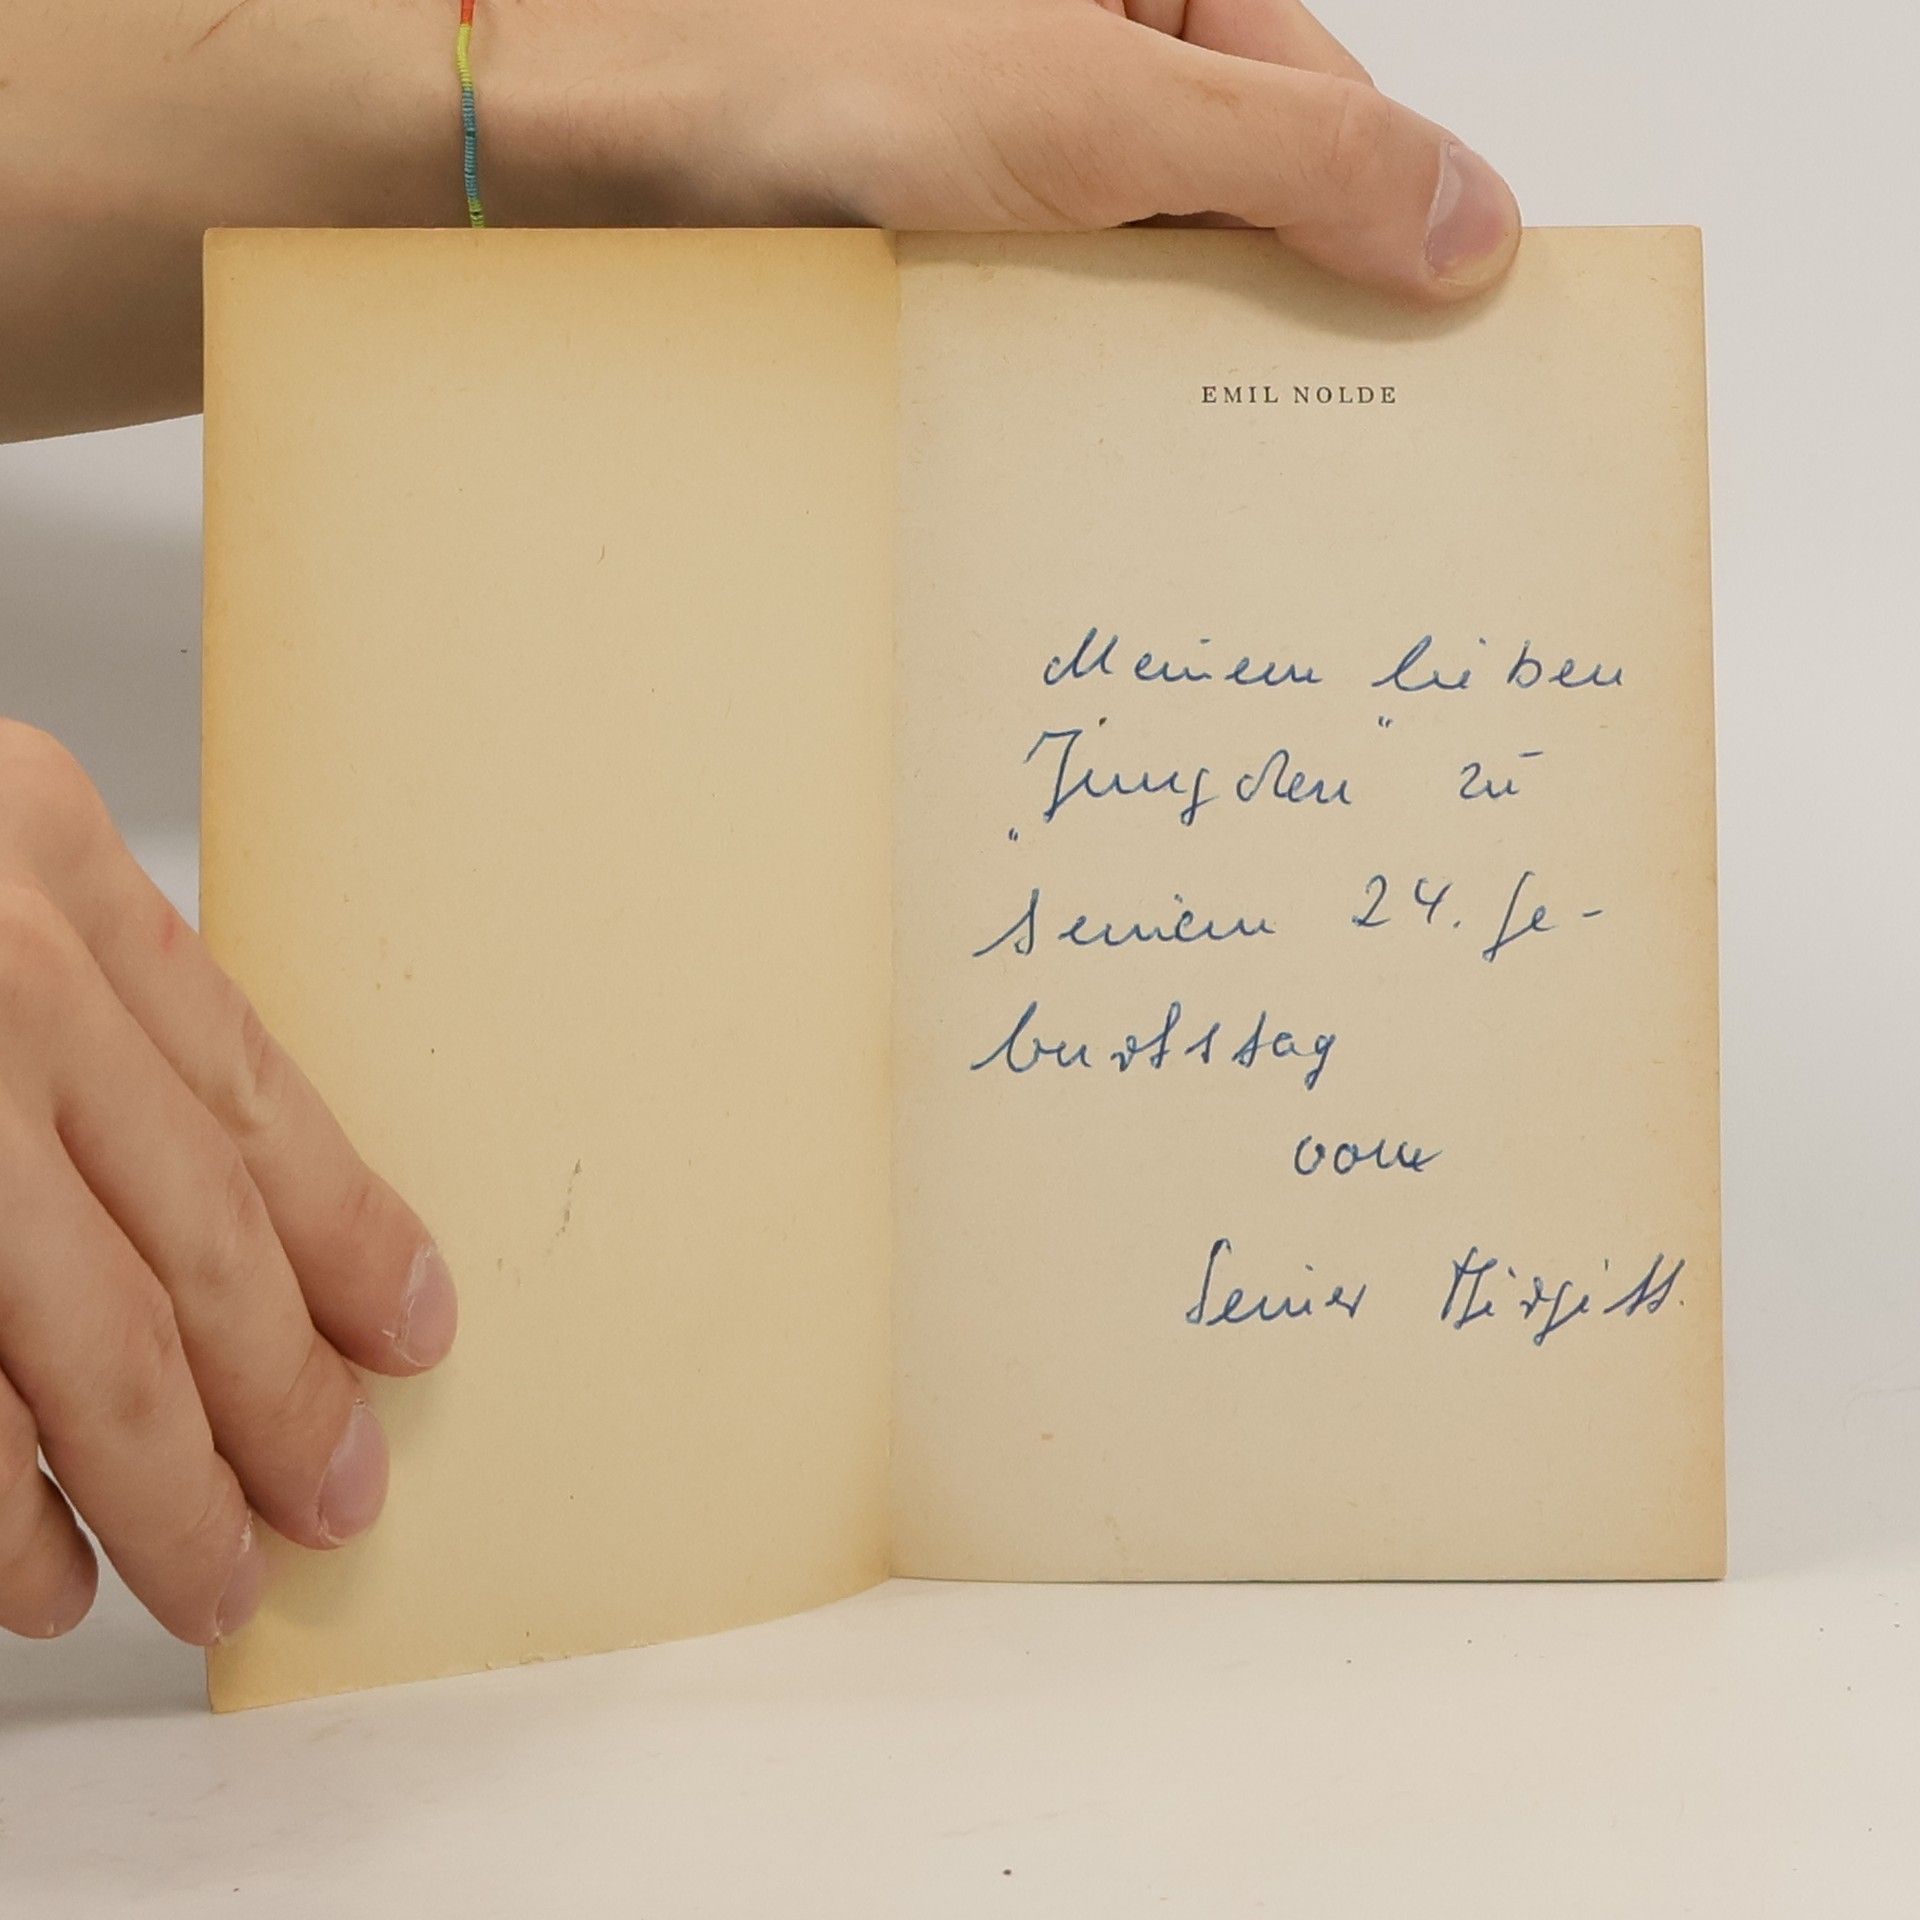 EMIL NOLDE
Meinem lieben
„Jungchen“ zu
seinem 24. Ge-
burtstag
von
Seiner